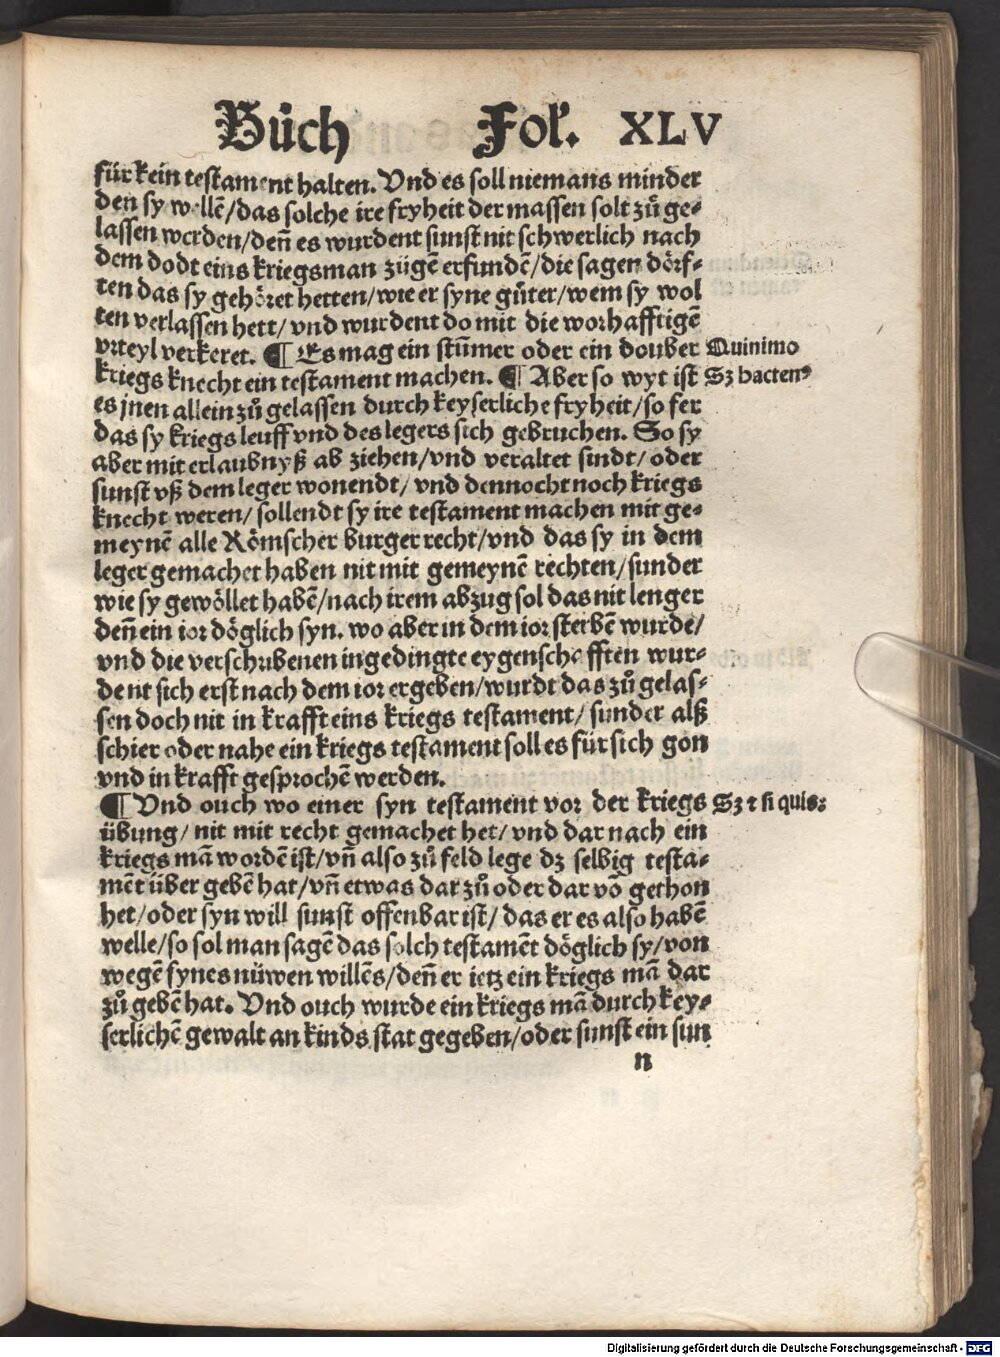 Bůch Fol. XLV
für kein testament halten. Vnd es soll niemans minder
den sy wellē/das solche ire fryheit der massen solt zů ge⸗
lassen werden/deñ es wurdent sunst nit schwerlich nach
dem dodt eins kriegsman zügē erfundē/die sagen dörf⸗
ten das sy gehöret hetten/wie er syne gůter/wem sy wol
ten verlassen hett/vnd wurdent do mit die worhafftigē
vrteyl verkeret. ¶ Es mag ein stūmer oder ein douber Quinimo
kriegs knecht ein testament machen. ¶ Aber so wyt ist Sz hacten⁹
es jnen allein zů gelassen durch keyserliche fryheit/so fer
das sy kriegs leuff vnd des legers sich gebruchen. So sy
aber mit erlaubnyß ab ziehen/vnd veraltet sindt/oder
sunst vß dem leger wonendt/vnd dennocht noch kriegs
knecht weren/sollendt sy ire testament machen mit ge⸗
meynē alle Römscher burger recht/vnd das sy in dem
leger gemachet haben nit mit gemeynē rechten/sunder
wie sy gewöllet habē/nach irem abzug sol das nit lenger
deñ ein ior döglich syn. wo aber in dem ior sterbē wurde/
vnd die verschribenen ingedingte eygenschafften wur⸗
dent sich erst nach dem ior ergeben/wurdt das zů gelas⸗
sen doch nit in krafft eins kriegs testament/sunder alß
schier oder nahe ein kriegs testament soll es für sich gon
vnd in krafft gesprochē werden.
¶ Vnd ouch wo einer syn testament vor der kriegs Sz ⁊ si quis:
übung/nit mit recht gemachet het/vnd dar nach ein
kriegs mā wordē ist/vñ also zů feld lege dz selbig testa⸗
mēt über gebē hat/vñ etwas dar zů oder dar vō gethon
het/oder syn will sunst offenbar ist/das er es also habē
welle/so sol man sagē das solch testamēt döglich sy/von
wegē synes nüwen willēs/deñ er ietz ein kriegs mā dar
zů gebē hat. Vnd ouch wurde ein kriegs mā durch key⸗
serlichē gewalt an kinds stat gegeben/oder sunst ein sun
n
Digitalisierung gefördert durch die Deutsche Forschungsgemeinschaft - DFG